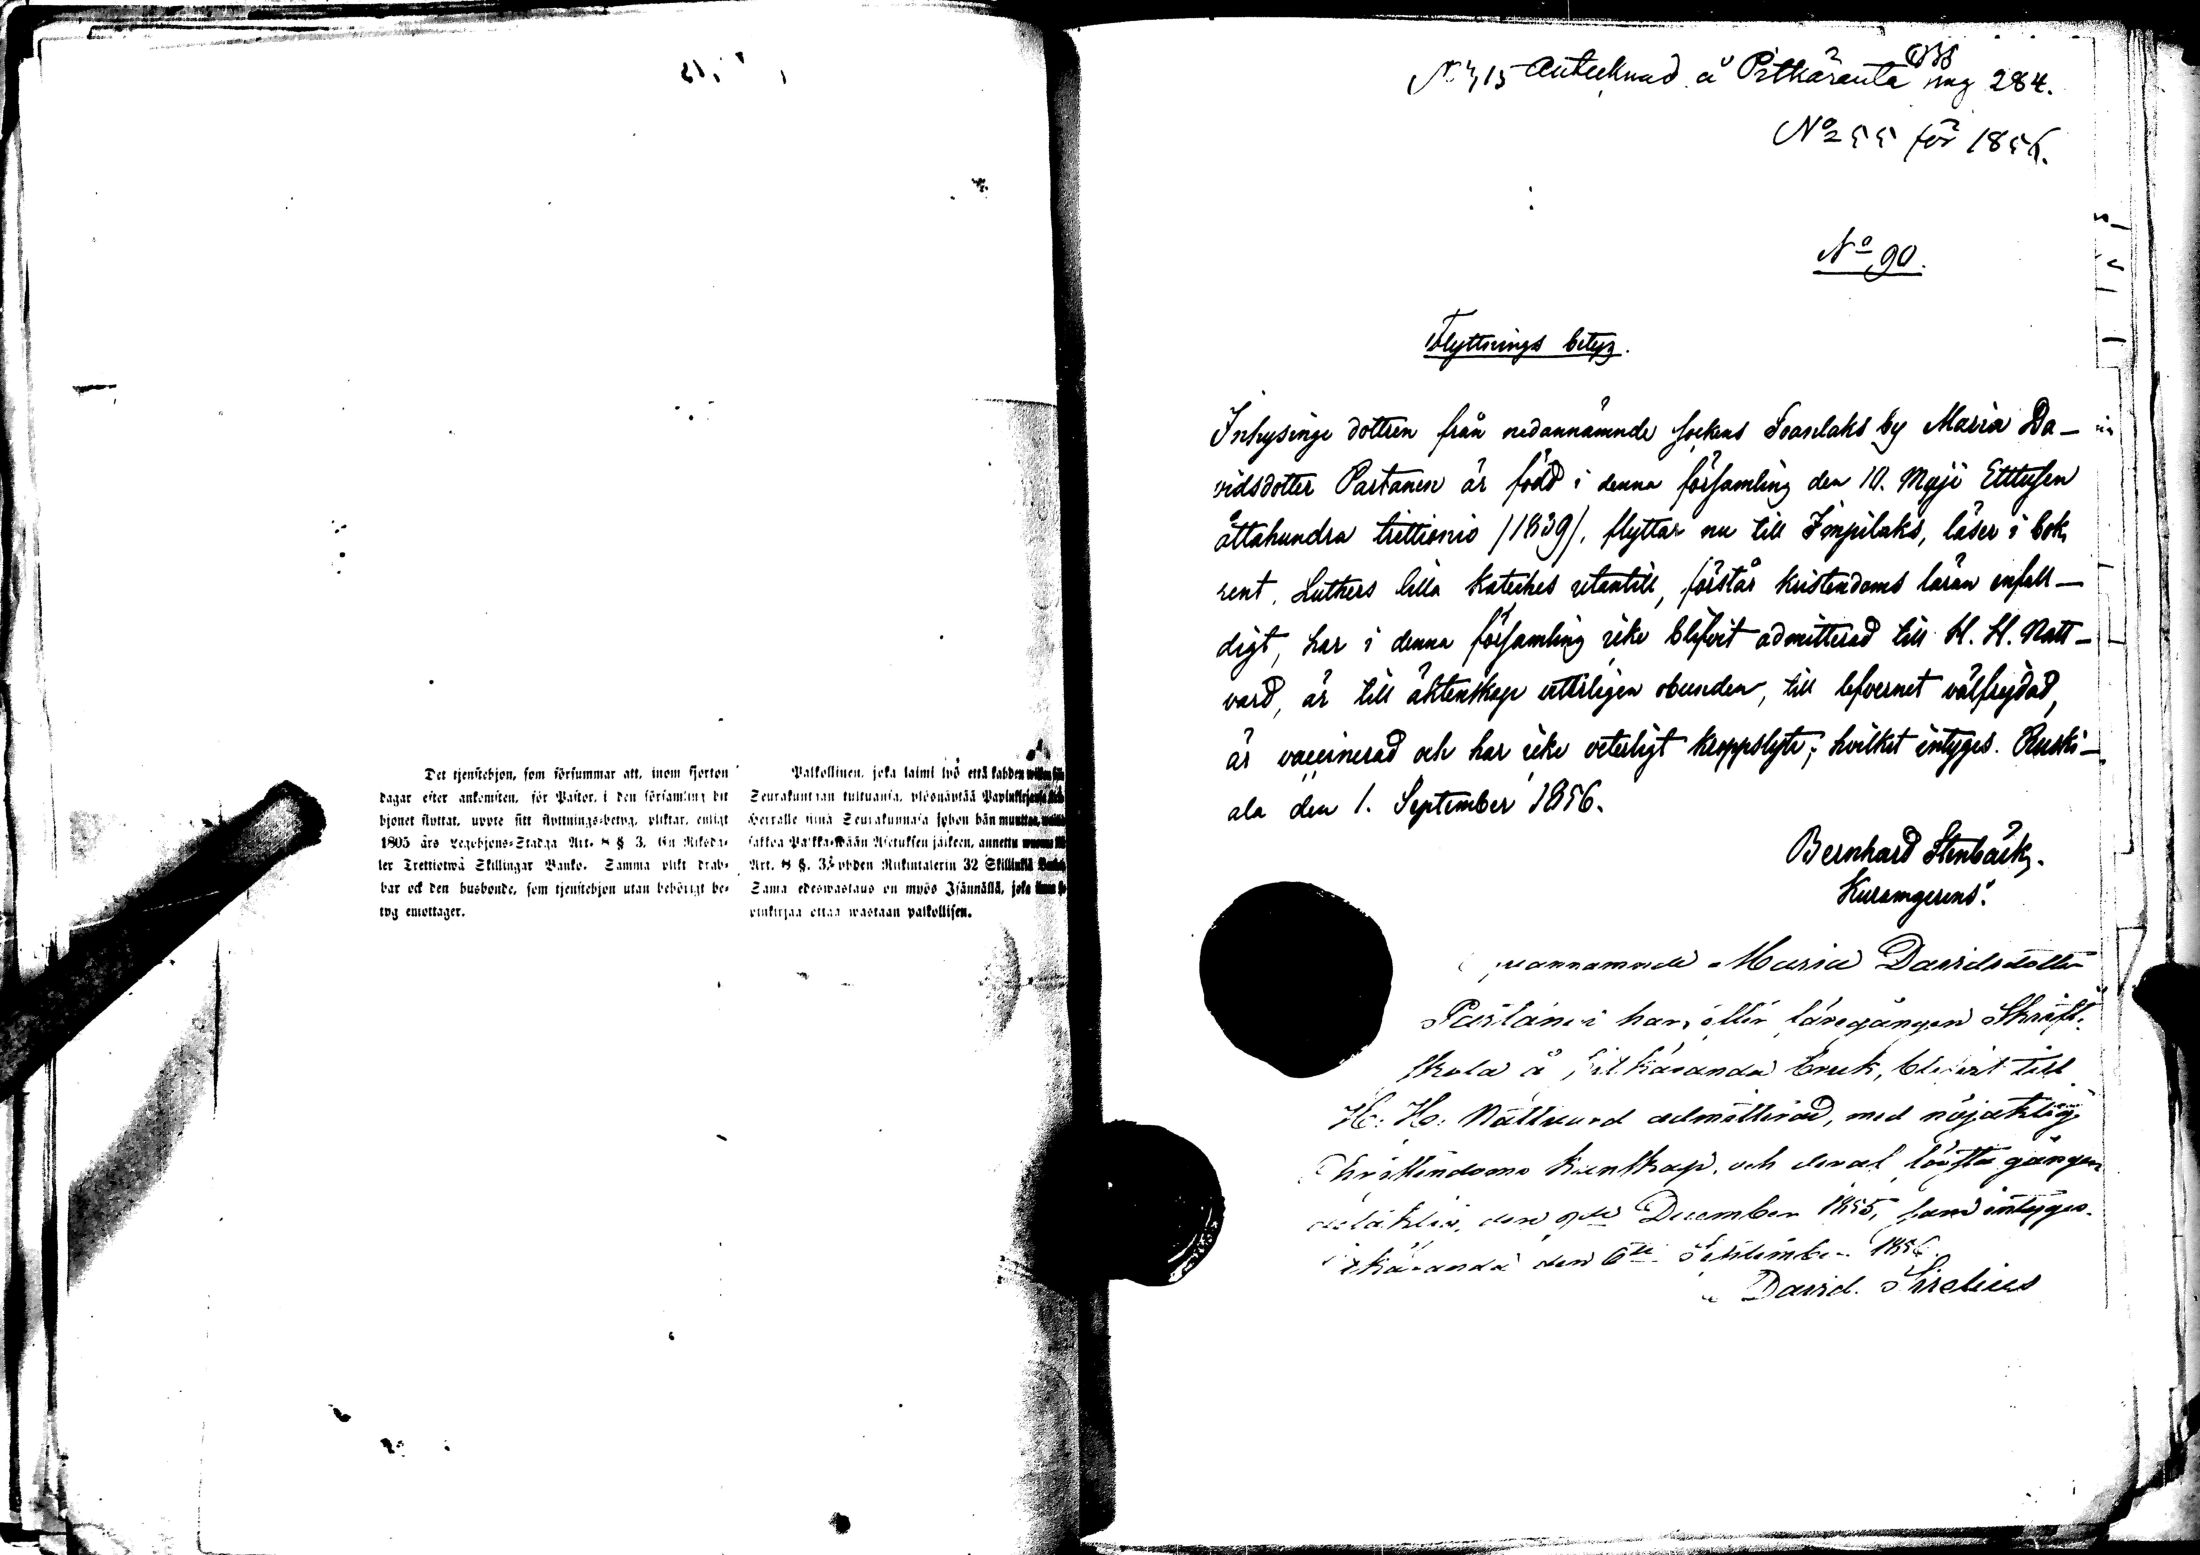 Det tjenstehjon, som försummar att, inom fjorton
dagar efter ankomsten, för Pastor, i den församling dit
hjonet flyttat, uppte sitt flyttnings-betyg, pliktar, enligt
1805 års Legohjons-Stadga Art. 8 § 3, En Riksda-
ler Trettiotwå Skillingar Banko. Samma plikt drab-
bar ock den husbonde, som tjenstehjon utan behörigt be-
tyg emottager.
Palkollinen, joka laimi lyö että kahden
Seurakuntaan tultuansa, ylösnäyttää
Herralle siinä Seurakunnasa johon hän muuttaa,
sakkoa Palkka-Wään Asetuksen jälkeen, annettu
Art. 8 §. 3, yhden Riikintalerin 32 Skillinkiä
Sama edeswastaus on myös Isännällä, joka
pinkirjaa ottaa wastaan palkollisen.
Antecknad å Pitkäranta pag 284.
No 55 för 1856.
No 90.
Flyttnings betyg.
Inhysinge dottren från nedannämnde Sockens Soanlaks by Maria Da-
vidsdotter Partanen är född i denna församling den 10. Maji Ettusen
åttahundra trettionio /1839/, flyttar nu till Impilaks, läser i bok
rent, Luthers lilla Kateches utantill, förstår kristendoms läran enfall-
digt, har i denna församling icke blifvit admitterad till H. H. Natt-
vard, är till äktenskap vitterligen obunden, till lefvernet välfrejdad,
är vaccinerad och har icke veterligt kroppslyte; hvilket intyges. Ruski-
ala den 1. September 1856.
Bernhard Stenbäck,
Maria Davidsdotter
Partanen har, efter föregången Skrift-
skola å Pitkäranda Bruk, blifvit till
H. H. Nattvard admitterad, med nöjaktig
Christendoms kunskap, och deraf första gången
delaktig, den December 1855, som intyges.
den 6te September 1856
David Sirelius